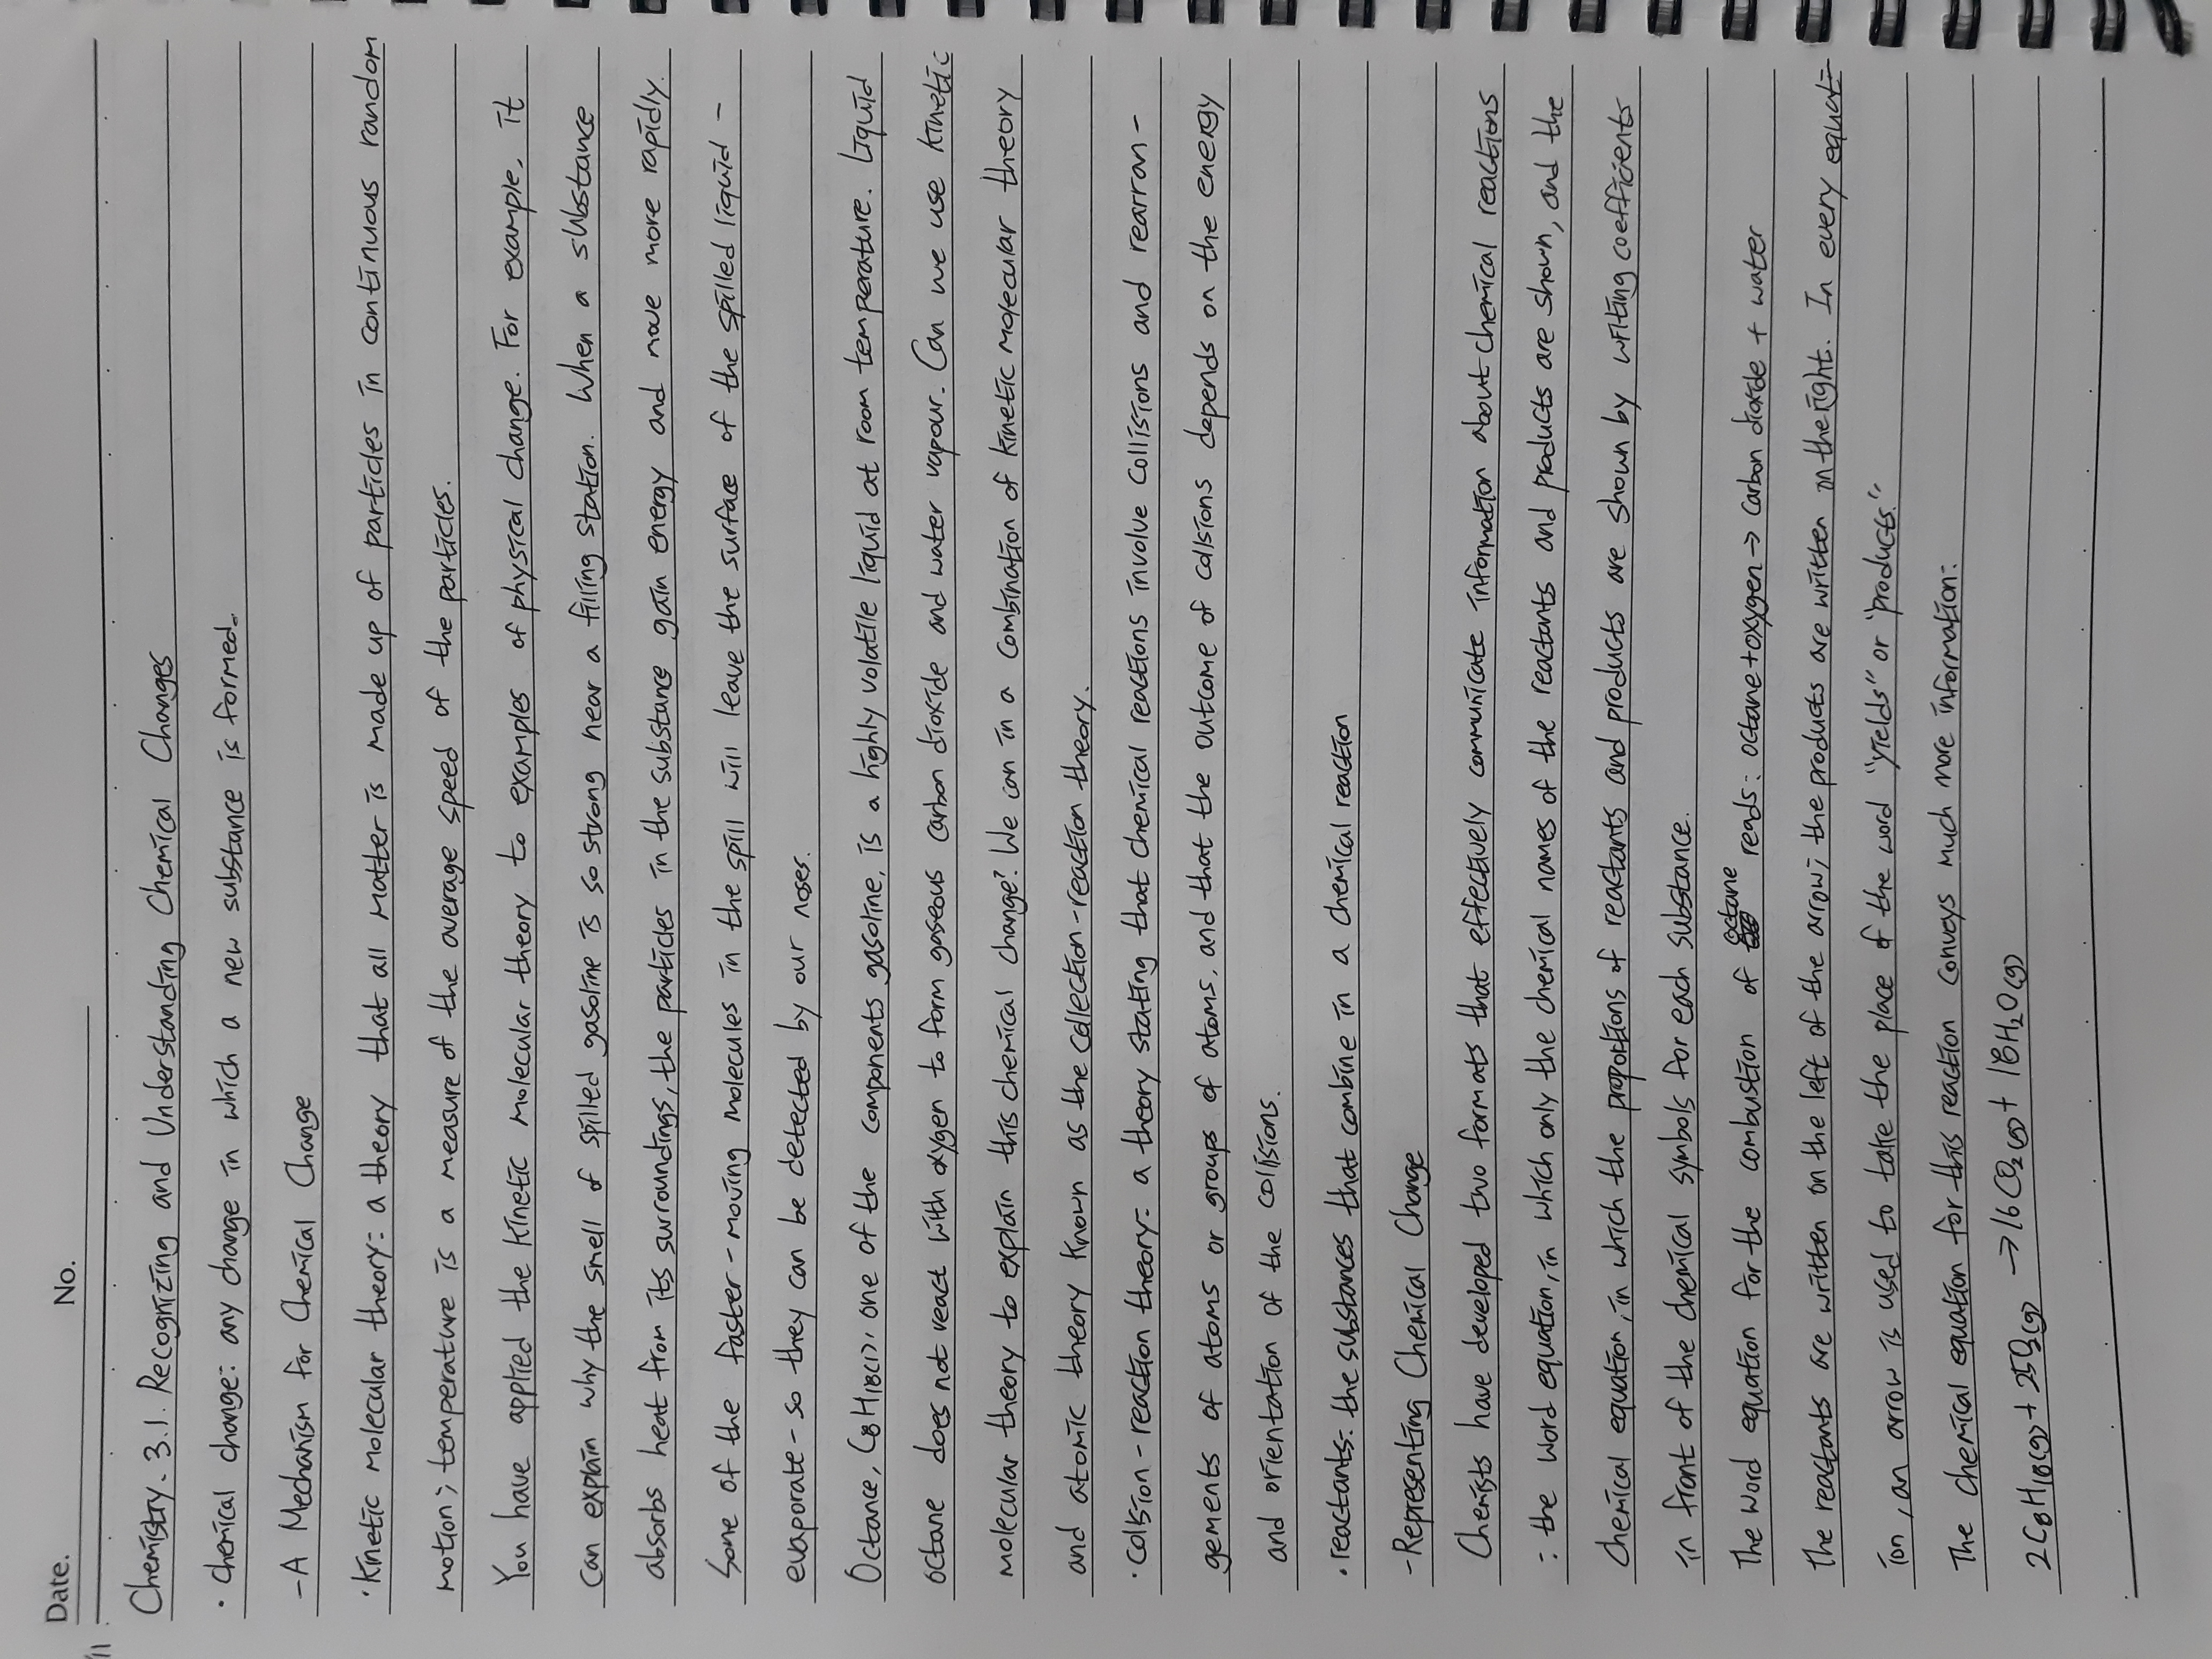 Date.
No.
Chemistry. 3.1. Recognizing and Understanding Chemical Changes
· chemical change: any change in which a new substance is formed.
- A Mechanism for Chemical Change
· Kinetic molecular theory: a theory that all matter is made up of particles in continuous random
motion; temperature is a measure of the average speed of the particles.
You have applied the kinetic molecular theory to examples of physical change. For example, it
can explain why the smell of spilled gasoline is so strong near a filling station. When a substance
absorbs heat from its surroundings, the particles in the substance gain energy and move more rapidly.
Some of the faster-moving molecules in the spill will leave the surface of the spilled liquid -
evaporate - so they can be detected by our noses.
Octane, C8H18(l), one of the components gasoline, is a highly volatile liquid at room temperature. Liquid
octane does not react with oxygen to form gaseous carbon dioxide and water vapour. Can we use kinetic
molecular theory to explain this chemical change? We can in a combination of kinetic molecular theory
and atomic theory known as the collection-reaction theory.
· Collsion-reaction theory: a theory stating that chemical reactions involve collisions and rearran-
gements of atoms or groups of atoms, and that the outcome of collsions depends on the energy
and orientation of the collisions.
· reactants: the substances that combine in a chemical reaction
- Representing Chemical Change
Chemists have developed two formats that effectively communicate information about chemical reactions
: the word equation, in which only the chemical names of the reactants and products are shown, and the
chemical equation, in which the proportions of reactants and products are shown by writing coefficients
in front of the chemical symbols for each substance.
The word equation for the combustion of octane reads: octane + oxygen → carbon dioxide + water
The reactants are written on the left of the arrow; the products are written on the right. In every equat-
ion, an arrow is used to take the place of the word "yields" or "products."
The chemical equation for this reaction conveys much more information:
2C8H18(g) + 25O2(g) → 16CO2(g) + 18H2O(g)